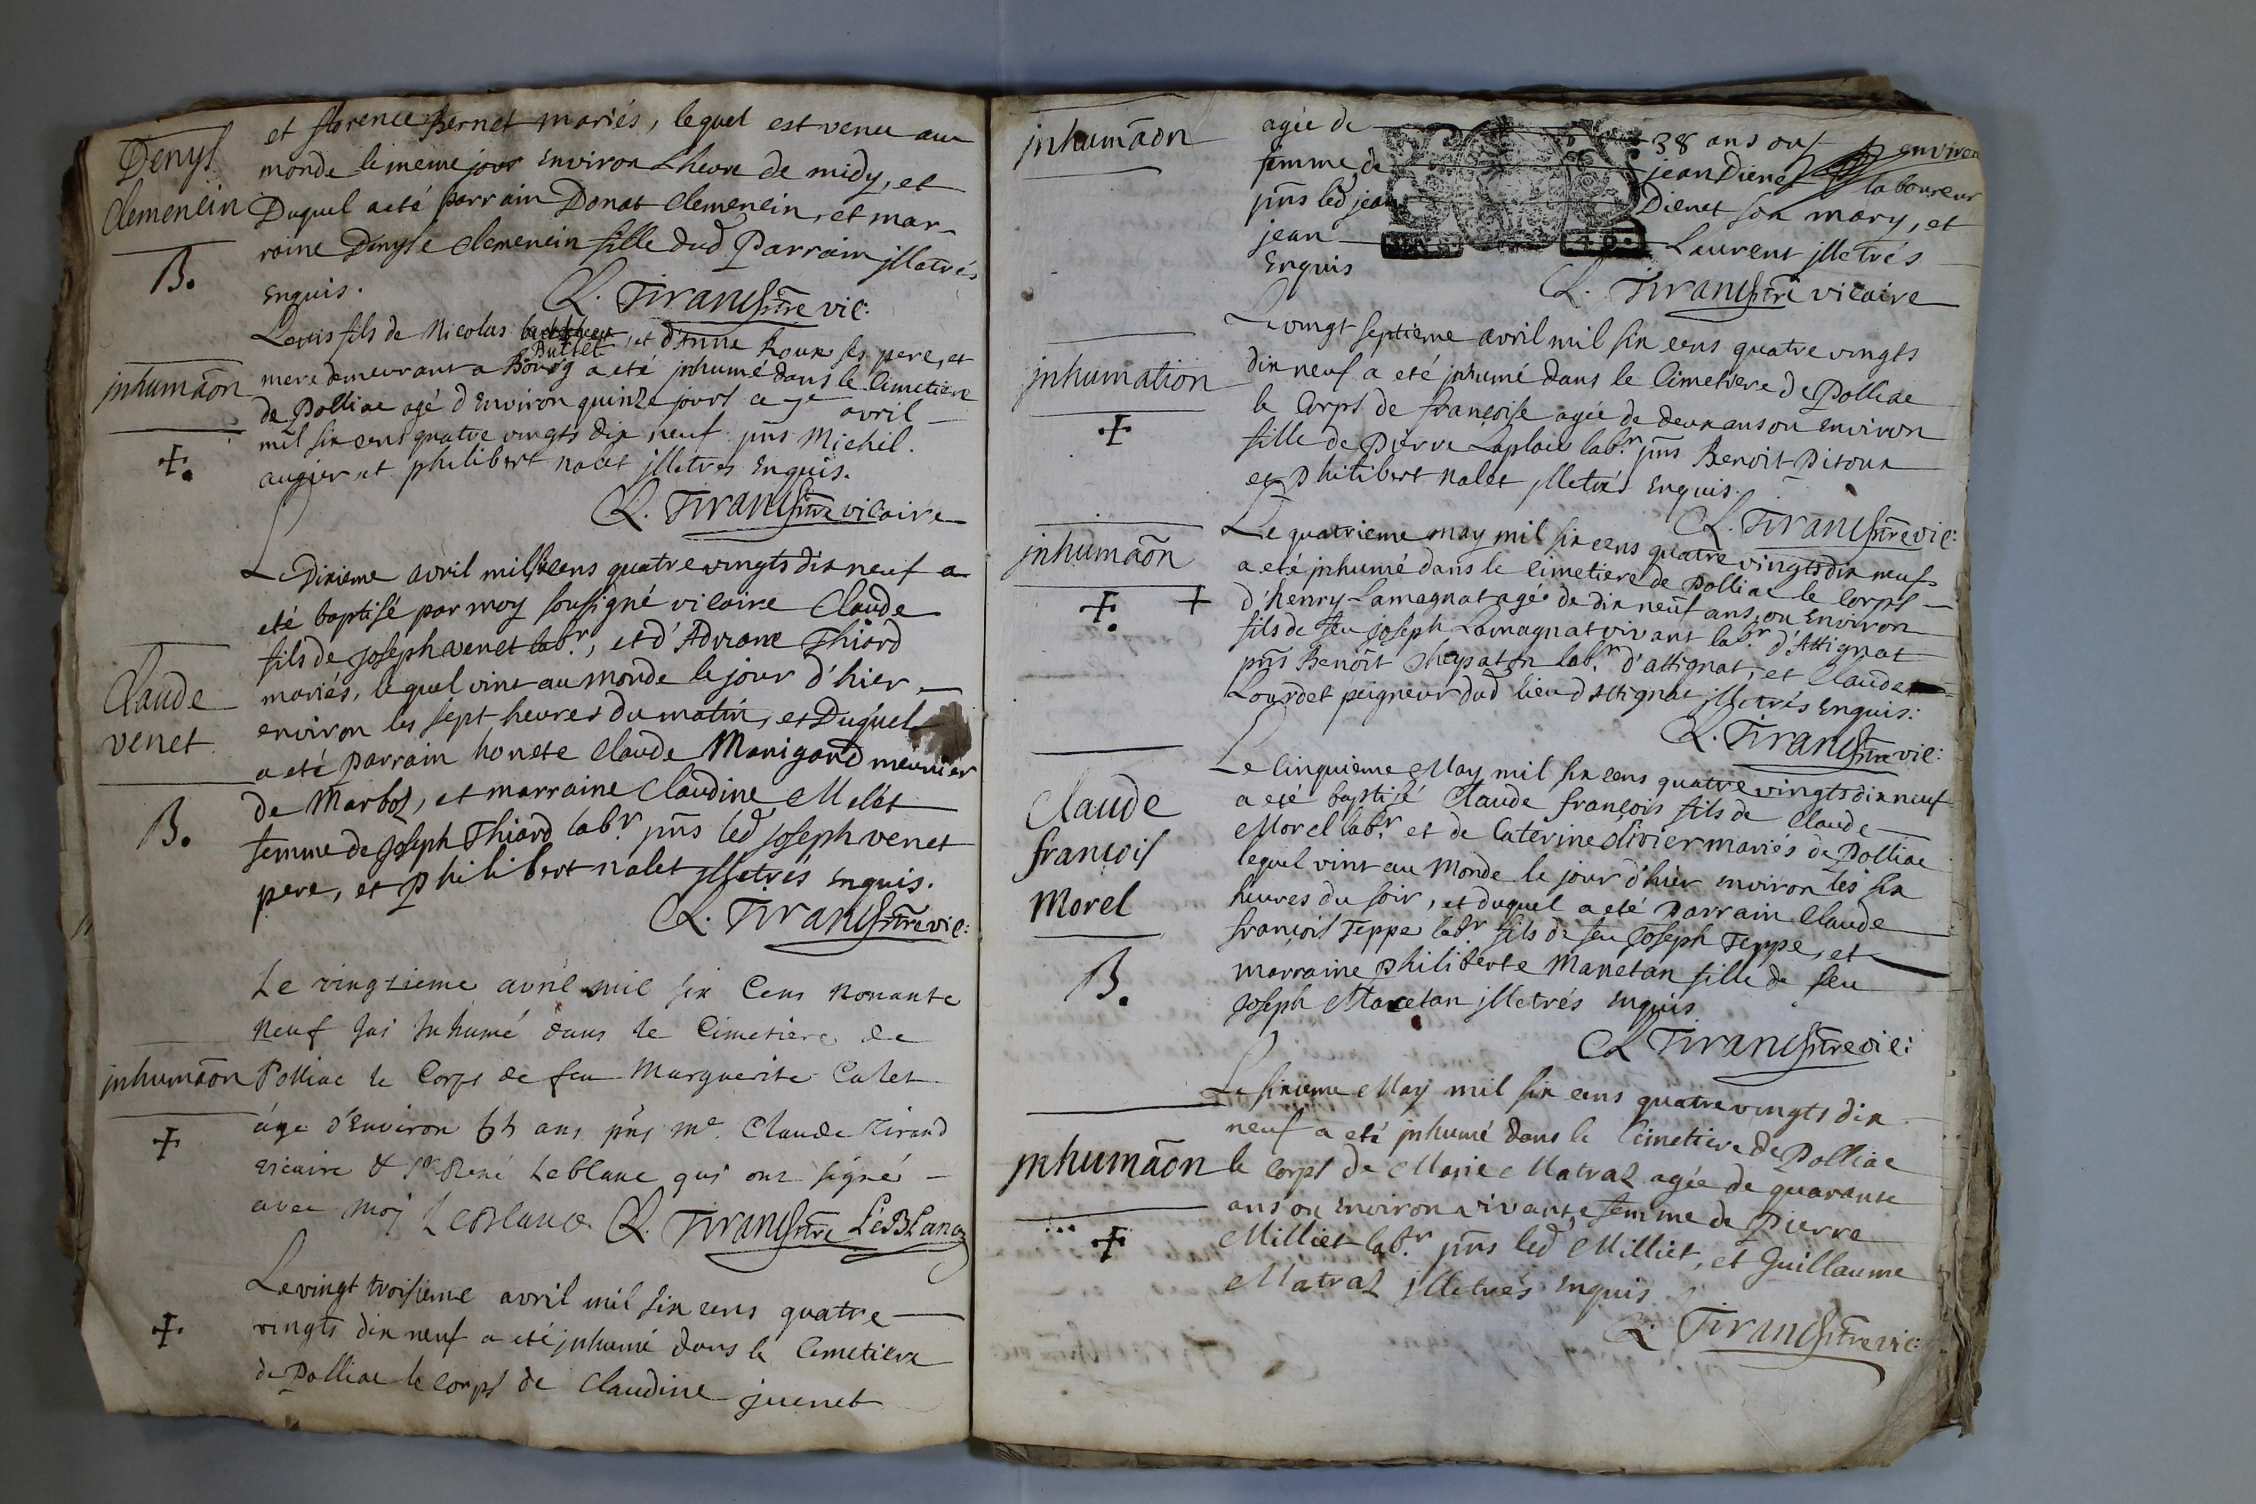 Denys
Clemencin
B.
et florence Bernet mariés, lequel est venu au
monde le meme jour environ Lheure de midy, et
Duquel a eté parrain Donat Clemencin, et mar-
raine Denyse Clemencin fille dud Parrain jlletrés
enquis.
C. Tirand ptre vic:
inhumaõn
+
Louis fils de Nicolas et d'Anne Roux ses pere, et
Buttet
mere demeurant a Bourg a eté jnhumé dans le Cimetiere
de Polliac agé d'environ quinze jours ce 7e avril
mil six cens quatre vingts dix neuf pñs Michel
augier et philibert nalet jlletres enquis.
C. Tirand ptre vicaire
Claude
venet
B.
Le Dixieme avril mil six cens quatre vingts dix neuf a
eté baptisé par moy soussigné vicaire Claude
fils de Joseph venet labr, et d'Adriane Thiard
mariés, lequel vint au monde le jour d'hier
environ les sept heures du matin, et Duquel
a eté parrain honete Claude Manigand meunier
de Marboz, et marraine Claudine Melet
femme de Joseph Thiard labr pñs led Joseph venet
pere, et philibert nalet jlletrés enquis.
C. Tirand ptre vic:
inhumaõn
+
Le vingtieme avril mil six Cens nonante
neuf jai Inhumé dans le Cimetiere de
Polliac le Corps de feu Marguerite Calet
áge d'Environ 65 ans pñs me. Claude Tirand
vicaire & sr René Leblanc qui ont signé
avec moy LeBlanc C. Tirand ptre LeBLanc
+
Le vingt troisieme avril mil six cens quatre
vingts dix neuf a eté jnhumé dans le Cimetiere
de Polliac le corps de Claudine juenet
jnhumaõn
agée de 38 ans ou environ
femme de jean Dienet laboureur
pñs led jean Dienet son mary, et
jean Laurent jlletrés
Enquis
C. Tirand ptre vicaire
jnhumation
+
Le vingt septieme avril mil six cens quatre vingts
dix neuf a eté jnhumé dans le Cimetiere de Polliac
le Corps de francoise agée de deux ans ou environ
fille de Pierre Laplace labr. pñs Benoit Pitoux
et philibert nalet jlletrés enquis.
C. Tirand ptre vic:
jnhumaõn
+ +
Le quatrieme may mil six cens quatre vingts dix neuf
a eté jnhumé dans le cimetiere de Polliac le Corps
d'henry Lamagnat agé de dix neuf ans, ou environ
fils de feu Joseph Lamagnat vivant labr d'Attignat
pñs Benoit labr. d'attignat, et Claude
Lourdet peigneur dud lieu d'Attignat jlletrés enquis:
C. Tirand ptre vic:
Claude
françois
Morel
B.
Le Cinquieme May mil six cens quatre vingts dix neuf
a eté baptisé Claude françois fils de Claude
Morel labr. et de Caterine olivier mariés de Polliac
lequel vint au Monde le jour d'hier environ les six
heures du soir, et duquel a eté parrain Claude
françois Teppe labr fils de feu Joseph Teppe, et
marraine philiberte Manetan fille de feu
Joseph Manetan jlletrés enquis
C. Tirand ptre vic:
jnhumaõn
+
Le sixieme May mil six cens quatre vingts dix
neuf a eté jnhumé dans le Cimetiere de Polliac
le corps de Marie Matraz agée de quarante
ans ou environ vivante femme de Pierre
Milliet labr. pñs led Milliet, et Guillaume
Matraz jlletrés enquis
C. Tirand ptre vic: